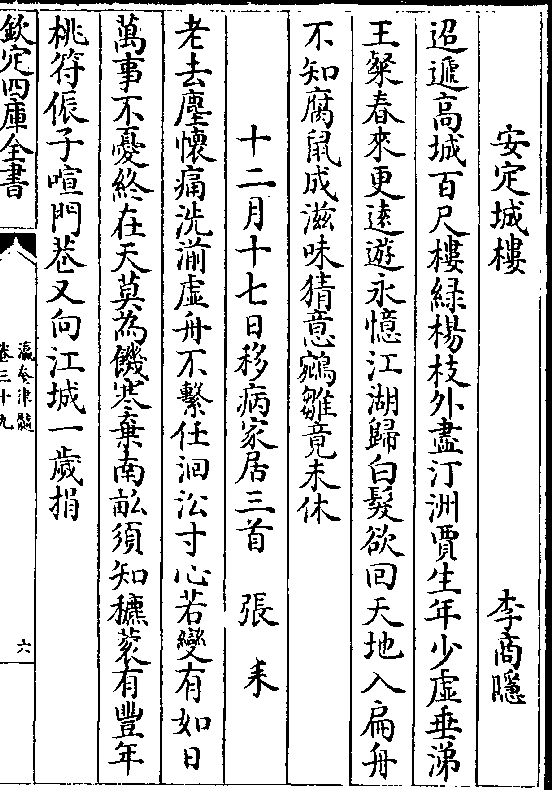 安定城樓　李商隱
迢遞高城百尺樓綠楊枝外盡汀洲賈生年少虛垂涕
王粲春來更遠遊永憶江湖歸白髮欲回天地入扁舟
不知腐鼠成滋味猜意鵷雛竟未休
十二月十七日移病家居三首　張耒
老去塵懷痛洗湔虛舟不繫任洄沿寸心若變有如日
萬事不憂終在天莫為饑寒棄南畝須知穮蔉有豐年
桃符侲子喧門巷又向江城一歲捐
欽定四庫全書
瀛奎律髓
卷三十九
六